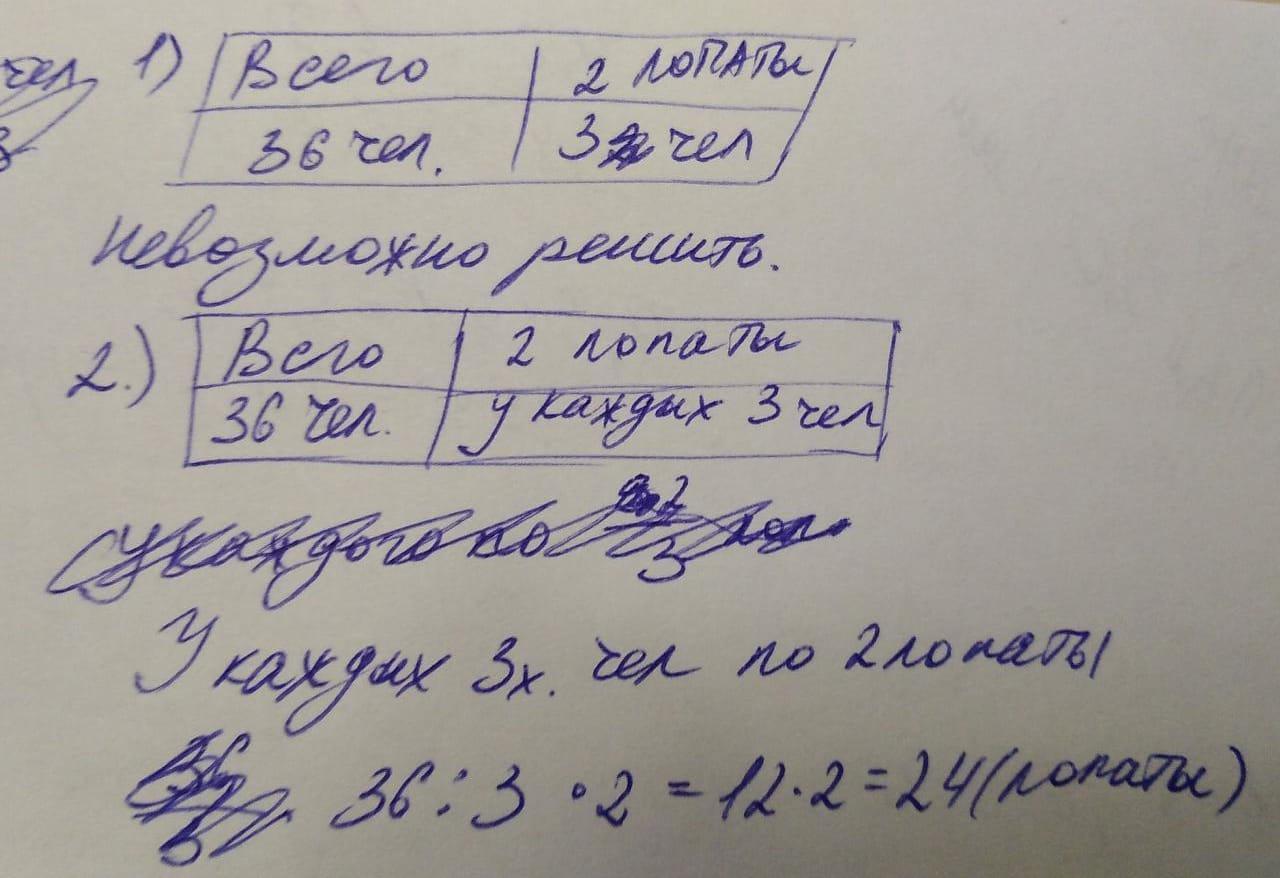 чел
1) Всего 2 лопаты
36 чел. 3 чел
Невозможно решить.
2.) Всего 2 лопаты
36 чел. у каждых 3 чел
У каждого по 2/3 лоп.
У каждых 3х. чел по 2 лопаты
36 : 3 · 2 = 12 · 2 = 24 (лопаты)